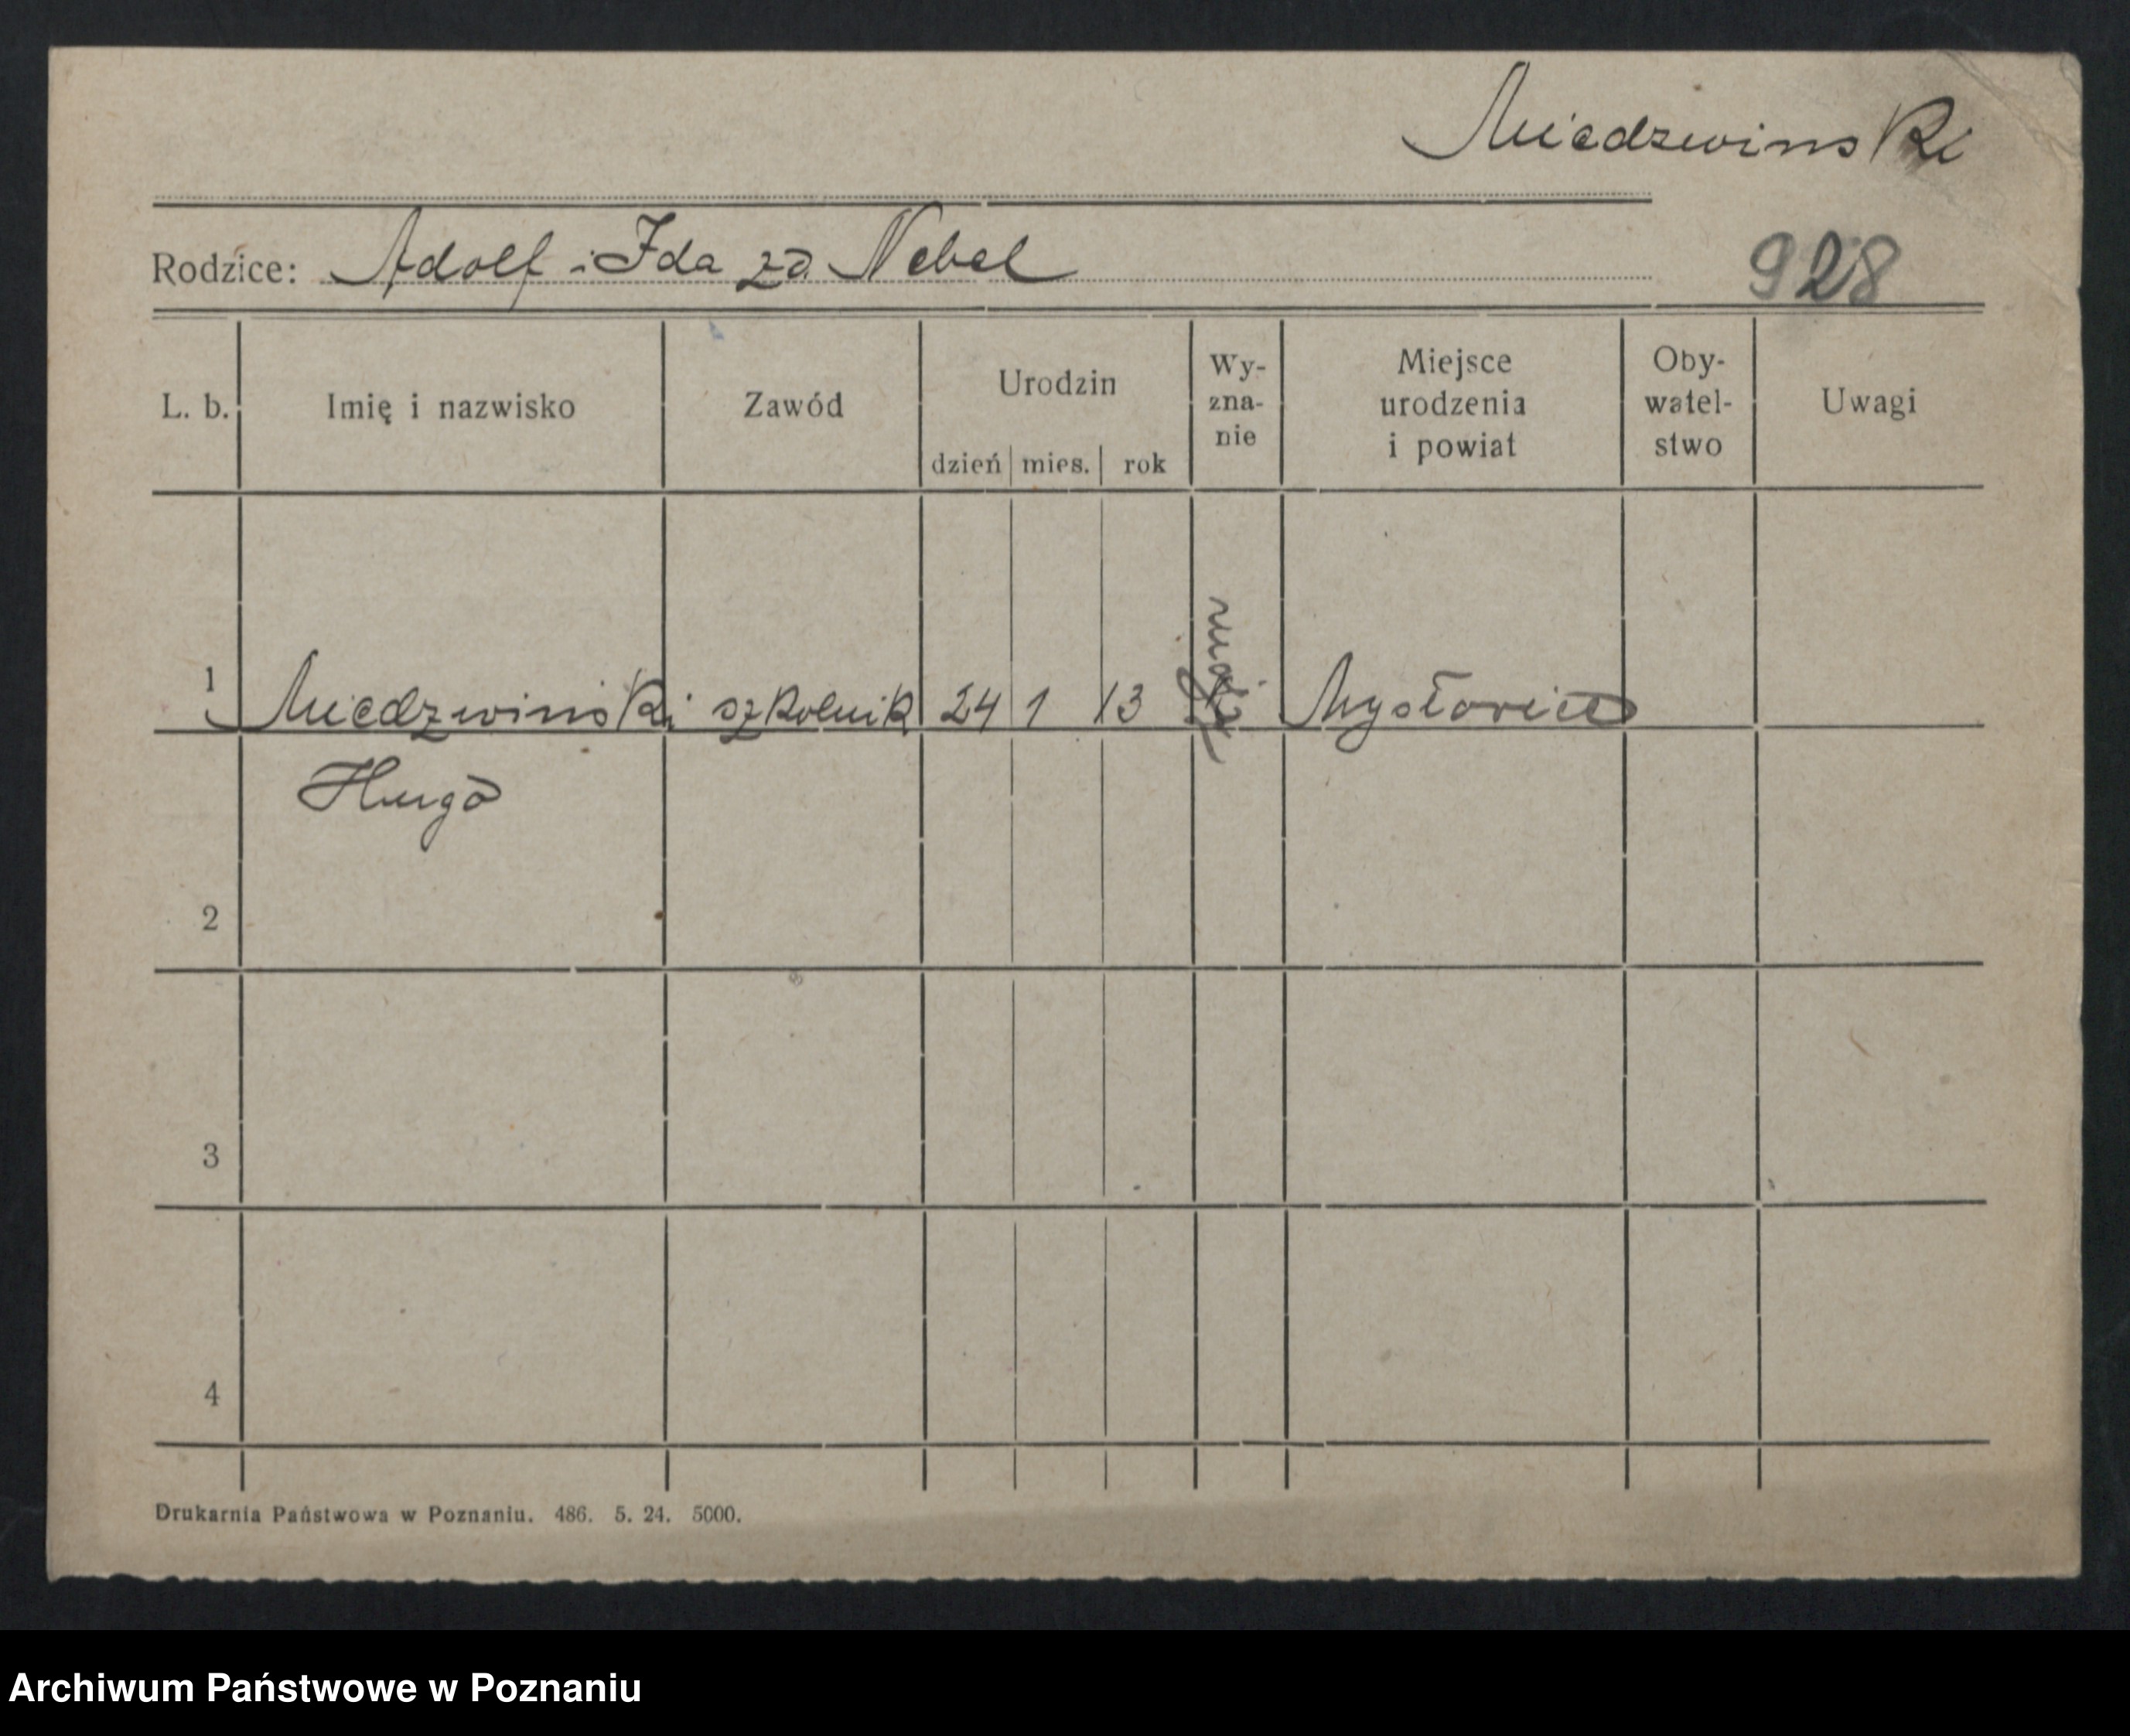 Miedzwinski
Rodzice: Adolf i Ida zd. Nebel
928
L. b. Imię i nazwisko Zawód Urodzin dzień mies. rok Wy-zna-nie Miejsce urodzenia i powiat Oby-watel-stwo Uwagi
1 Miedzwinski szkolnik 24 1 13 Mysłowice
Hugo
2
3
4
Drukarnia Państwowa w Poznaniu. 486. 5. 24. 5000.
Archiwum Państwowe w Poznaniu